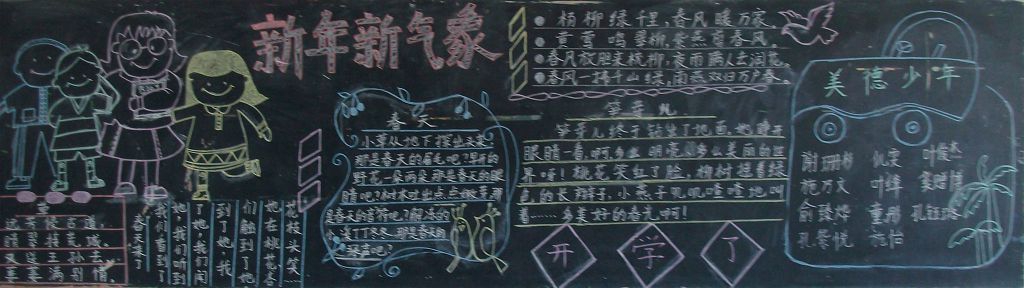 新年新气象
杨柳绿千里，春风暖万家。
黄莺鸣翠柳，紫燕剪春风。
春风放胆来梳柳，夜雨瞒人去润花。
春风一拂千山绿，南燕双归万户春。
美德少年
春天
小草从地下探出头来，
那是春天的眉毛吧？早开的
野花一朵两朵，那是春天的眼
睛吧？树木吐出点点嫩芽，那
是春天的音符吧？解冻的
小溪丁丁冬冬，那是春天的
琴声吧？
笋芽儿
笋芽儿终于钻出了地面。她睁开
眼睛一看，啊，多么明亮、多么美丽的世
界呀！桃花笑红了脸，柳树摇着绿
色的长辫子，小燕子叽叽喳喳地叫
着……多美好的春光啊！
开学了
远芳侵古道，
晴翠接荒城。
又送王孙去，
萋萋满别情。
春天来了！
我们看到了
她，我们听到
了她，我们闻
到了她，我
们触到了她。
她在桃花、杏
花枝头笑……
叶俊杰
叶绎
俞
孔令悦 施怡